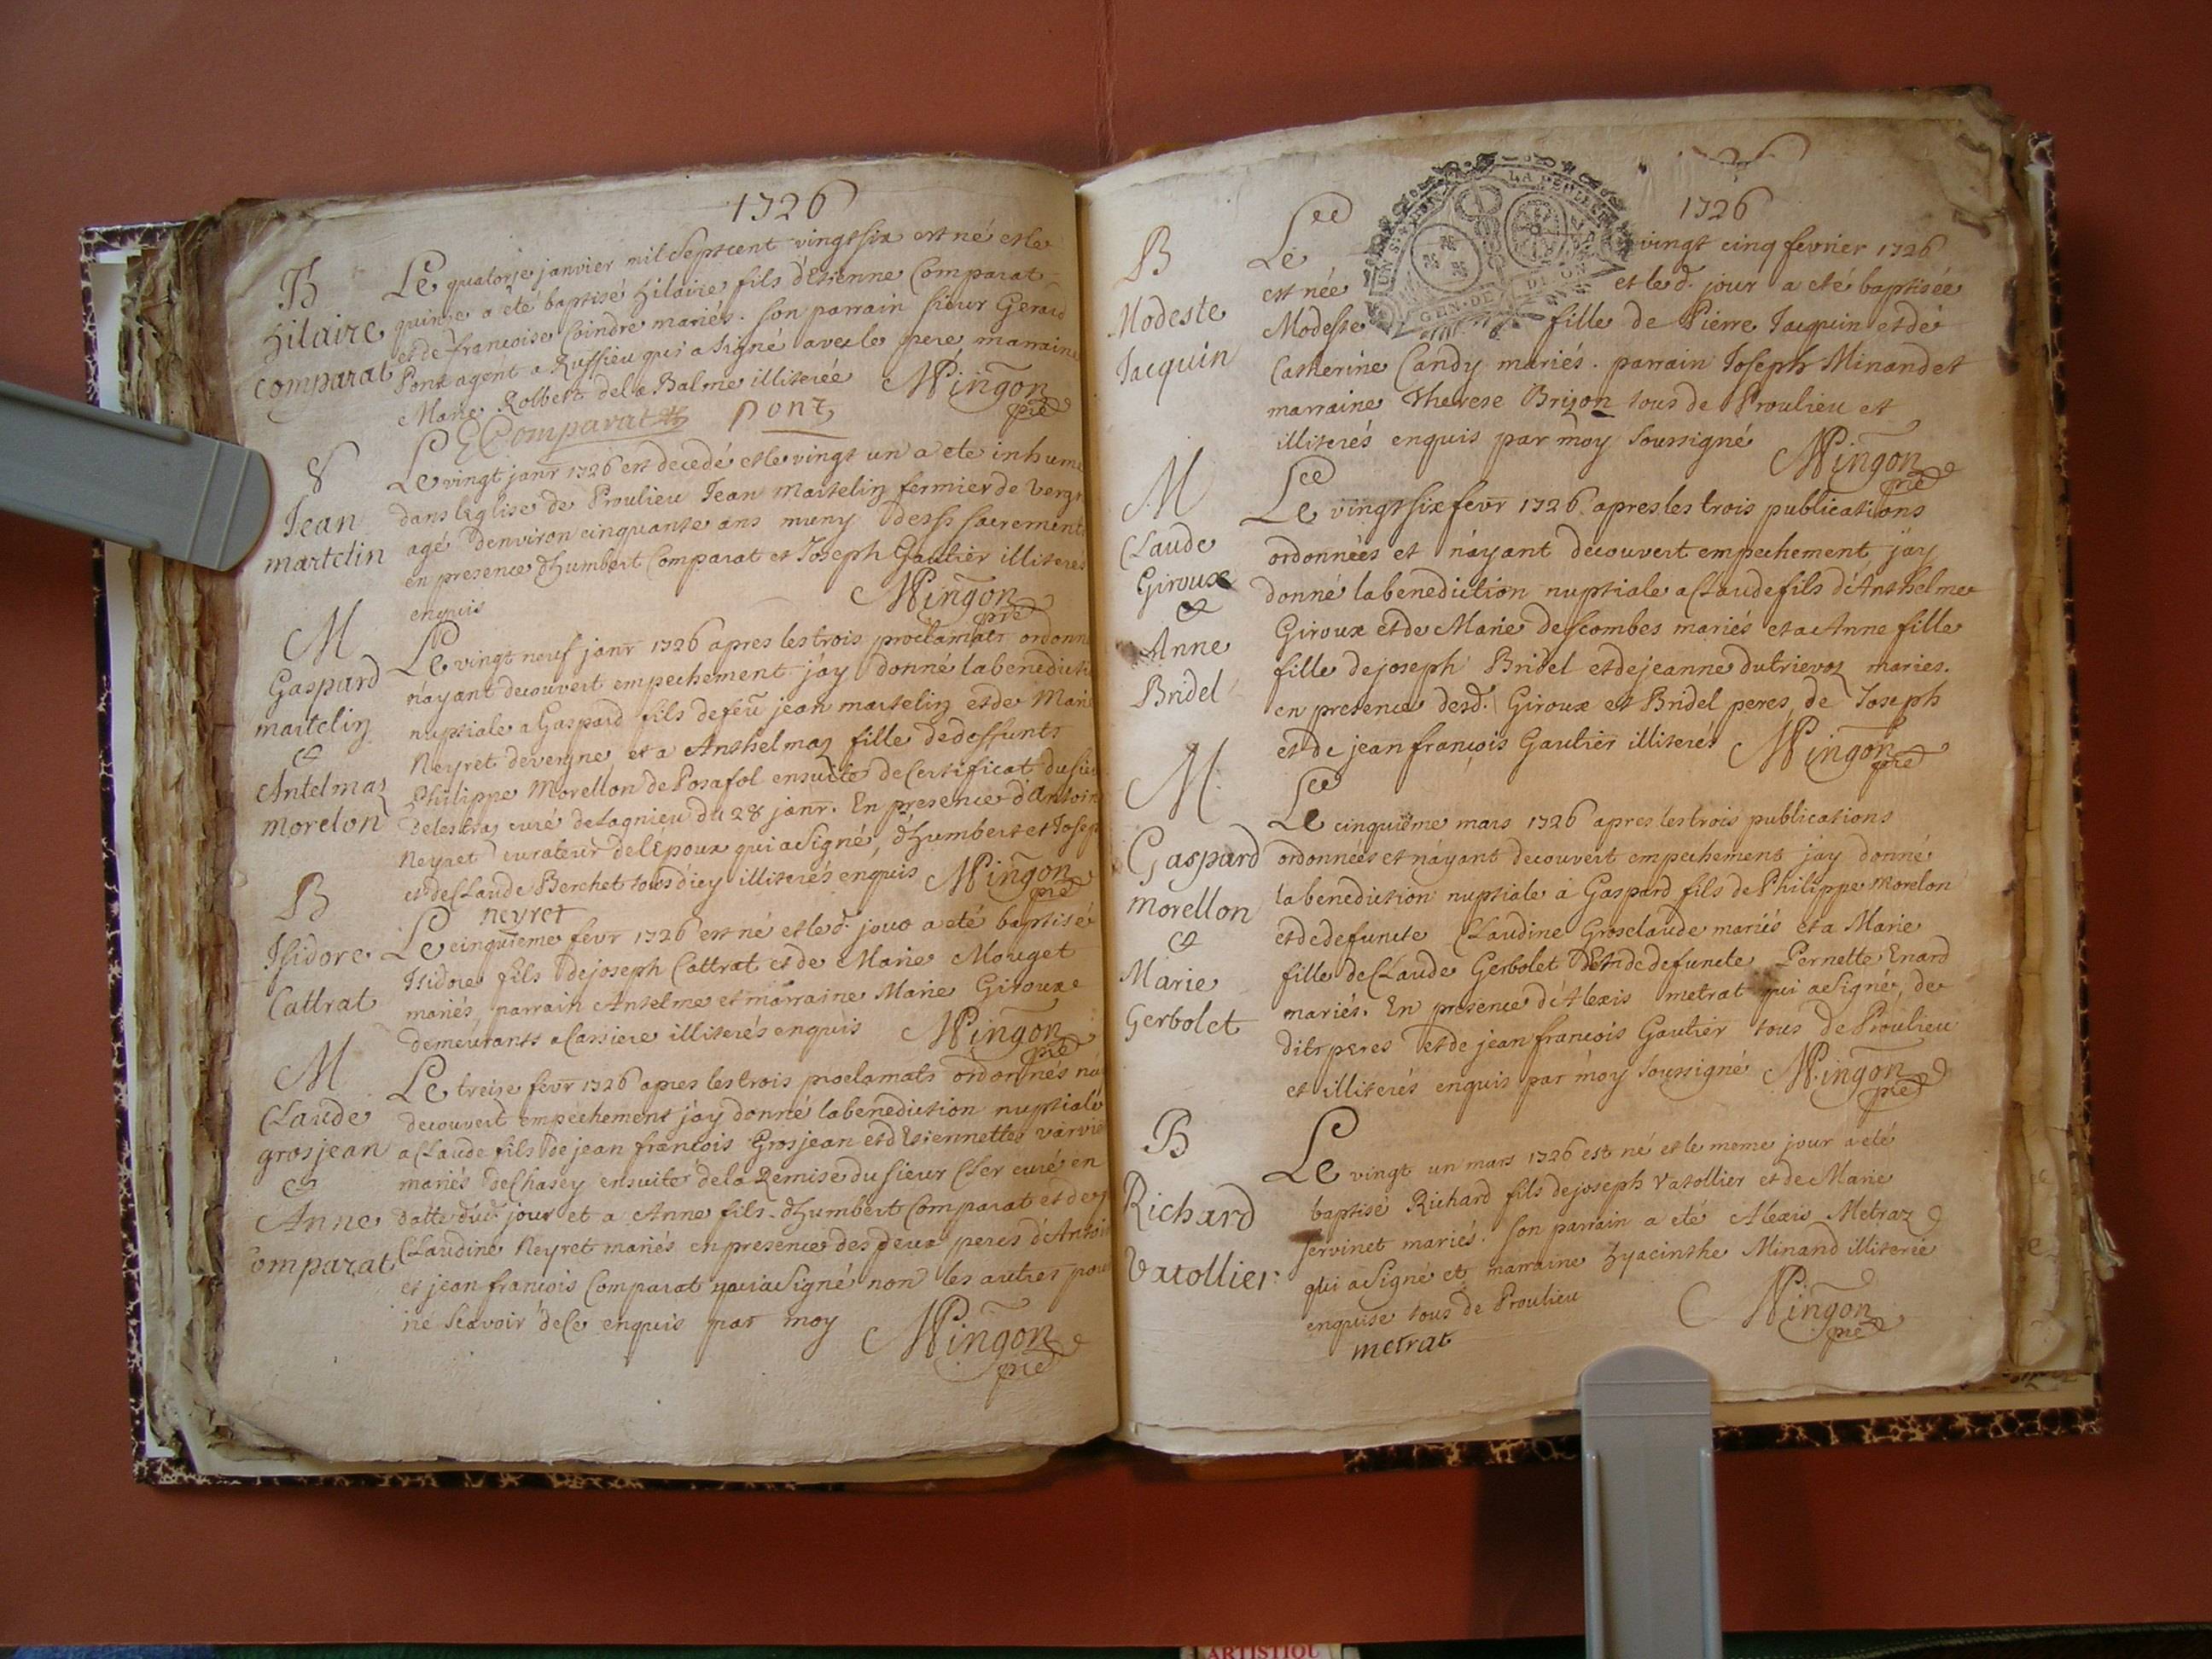 1726
B
Hilaire
comparat
Le quatorze janvier mil septcent vingtsix est né et le
quinze a eté baptisé hilaire fils d'Etienne Comparat
et de francoise Coindre mariés. son parrain sieur Gerard
Pont agent a Ruffieu qui a signé avec le pere marraine
Marie Robbert de la Balme illiterée Mingon
pre
EComparat Pont
S
Jean
martelin
Le vingt janr 1726 est decedé et le vingt un a ete inhumé
dans l'Eglise de Proulieu Jean Martelin fermier de
agé d'environ cinquante ans muny desss sacrements
en presence d'humbert Comparat et Joseph Gautier illiterés
enquis Mingon
pre
M
Gaspard
martelin
&
Antelmaz
morelon
Le vingt neuf janr 1726 apres les trois proclamats ordonn
n'ayant decouvert empechement j'ay donné la benedicti
nuptiale a Gaspard fils de feu jean martelin et de Marie
Neyret de vergne et a Anthelmaz fille de deffunts
Philippe Morellon de Posafol ensuite de certificat du sieu
delestraz curé de Lagnieu du 28 janr. En presence d'Antoin
Neyret curateur de l'Epoux qui a signé, d'humbert et Josep
et de Claude Berchet tous d'icy illiterés enquis Mingon
pre
neyret
B
Isidore
Cattrat
Le cinquieme fevr 1726 est né et led. jour a eté baptisé
Isidore fils de joseph Cattrat et de Marie Mouget
mariés, parrain Antelme et marraine Marie Giroux
demeurants a Carsiere illiterés enquis Mingon
pre
M
Claude
grosjean
&
Anne
Comparat
Le treize fevr 1726 apres les trois proclamats ordonnés na
decouvert empechement j'ay donné la benediction nuptiale
a Claude fils de jean francois Grosjean et d'Etiennette
mariés de Chasey ensuite de la Remise du sieur Cler curé en
datte dud. jour et a Anne fils d'humbert Comparat et de
Claudine Neyret mariés en presence des deux peres d'Antoin
et jean francois Comparat qui a signé non les autres pour
ne scavoir de ce enquis par moy Mingon
pre
1726
B
Modeste
Jacquin
Le vingt cinq fevrier 1726
est née et led. jour a eté baptisée
Modeste fille de Pierre Jacquin et de
Catherine Candy mariés. parrain Joseph Minand et
marraine Therese Brizon tous de Proulieu et
illiterés enquis par moy soussigné Mingon
pre
M
Claude
Giroux
&
Anne
Bridel
Le vingtsix fevr 1726 apres les trois publications
ordonnées et n'ayant decouvert empechement j'ay
donné la benediction nuptiale a Claude fils d'Anthelme
Giroux et de Marie descombes mariés et a Anne fille
fille de joseph Bridel et de jeanne dutrievoz mariés.
en presence desd. Giroux et Bridel peres, de Joseph
et de jean françois Gautier illiterés Mingon
pre
M
Gaspard
morellon
&
Marie
Gerbolet
Le cinquiéme mars 1726 apres les trois publications
ordonnées et n'ayant decouvert empechement j'ay donné
la benediction nuptiale à Gaspard fils de Philippe Morelon
et de defuncte Claudine Grosclaude mariés et a Marie
fille de Claude Gerbolet et de defuncte Pernette Enard
mariés. En presence d'Alexis metrat qui a signé, de
dits peres et de jean francois Gautier tous de Proulieu
et illiterés enquis par moy soussigné Mingon
pre
B
Richard
Vatollier
Le vingt un mars 1726 est né et le meme jour a eté
baptisé Richard fils de joseph Vatollier et de Marie
servinet mariés. son parrain a eté Alexis Metraz
qui a signé et marraine hyacinthe Minand illiterée
enquise tous de Proulieu Mingon
pre
metrat
LA
GEN. DE DIJON
ARTISTIQU